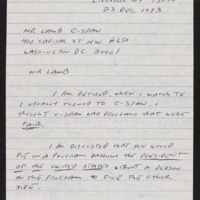 LIVERPOOL NY 13090
23 DEC 1993
MR LAMB C-SPAN
400 CAPITAL ST NW #650
WASHINGTON DC 20001
MR LAMB
I AM RETIRED WHEN I WATCH TV
I USUALLY TURNED TO C-SPAN, I
THOUGHT C-SPAN HAD PROGRAMS THAT WERE
FAIR.
I AM DISGUSTED THAT YOU WOULD
PUT ON A PROGRAM BASHING THE PRESIDENT
OF THE UNITED STATES WITHOUT A PERSON
ON THE PROGRAM TO GIVE THE OTHER
SIDE.